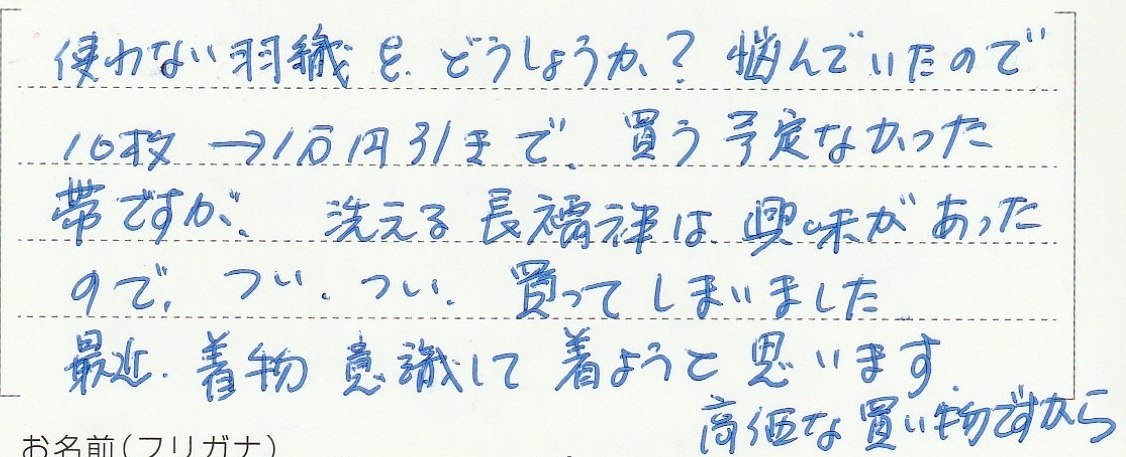 使わない羽織を、どうしょうか?悩んでいたので
10枚→1万円引まで、買う予定なかった
帯ですが、洗える長襦袢は、興味があった
ので、つい、つい、買ってしまいました
最近、着物意識して着ようと思います。
高価な買い物ですから
お名前(フリガナ)